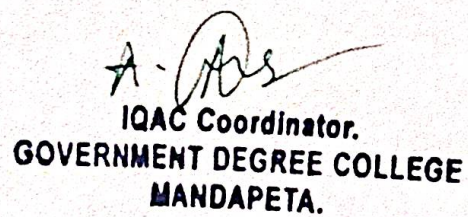 IQAC Coordinator.
GOVERNMENT DEGREE COLLEGE
MANDAPETA.